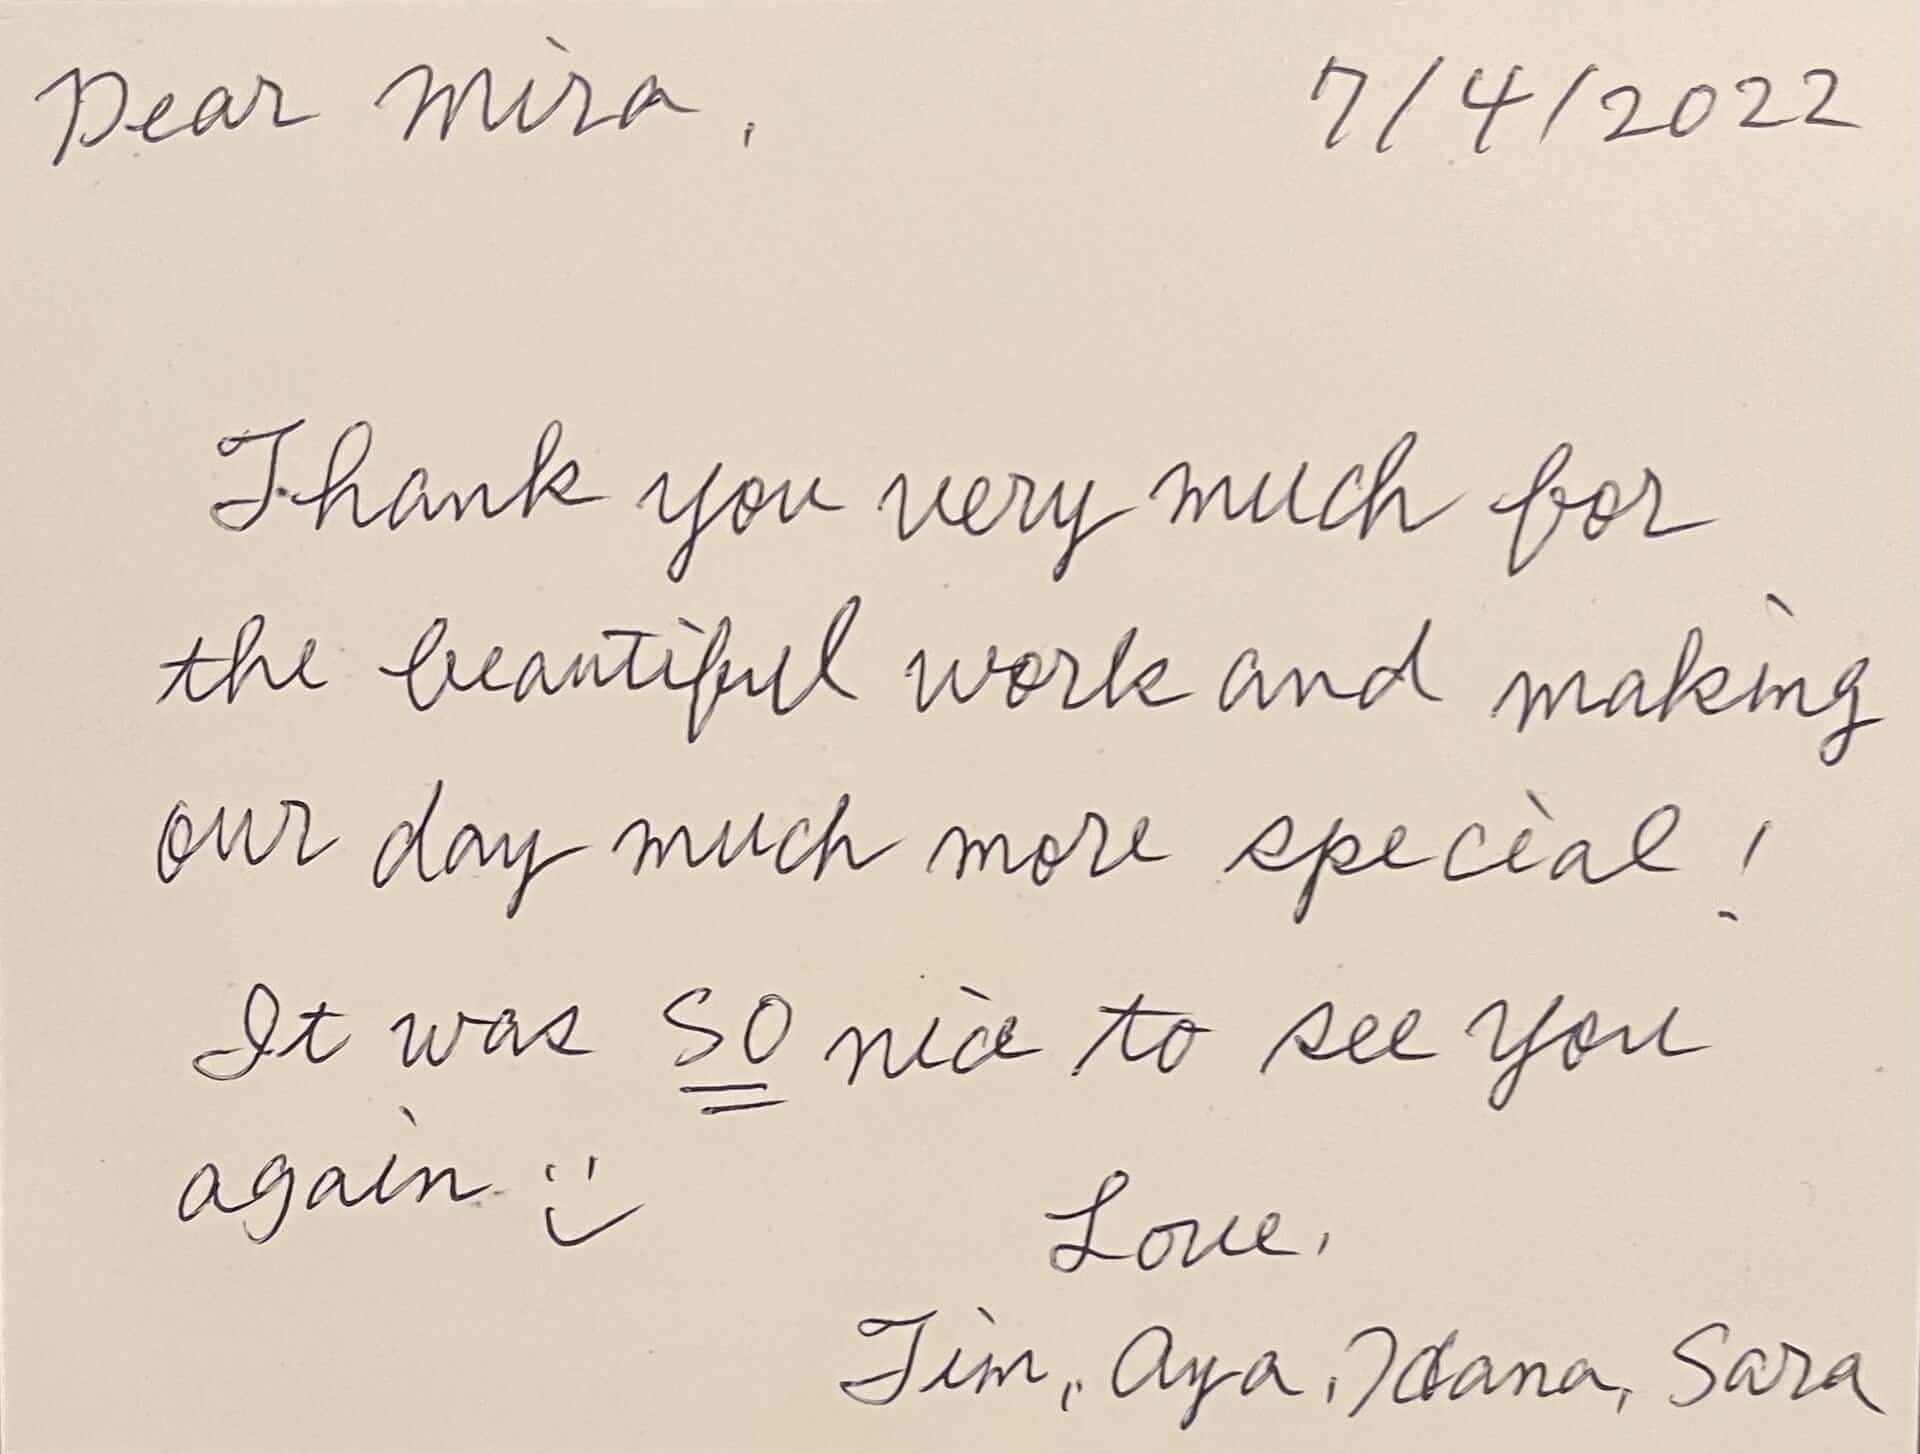 Dear Mira, 7/4/2022
Thank you very much for
the beautiful work and making
our day much more special!
It was SO nice to see you
again :)
Love,
Tim, Aya, Hana, Sara